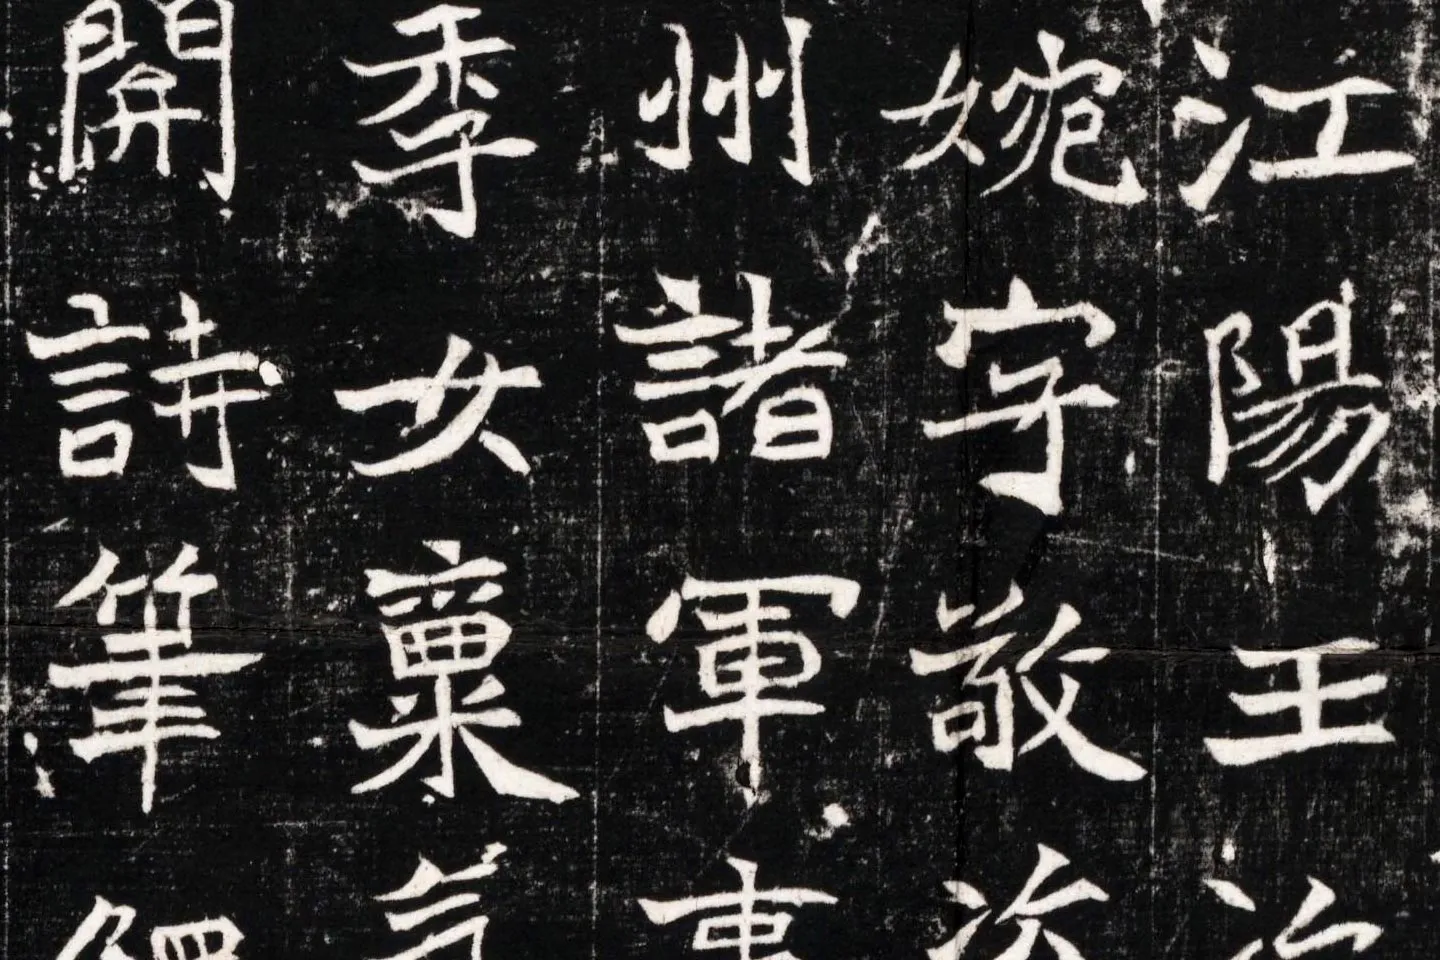 江陽王次
婉字敬
州諸軍事
季女稟
開詩筆